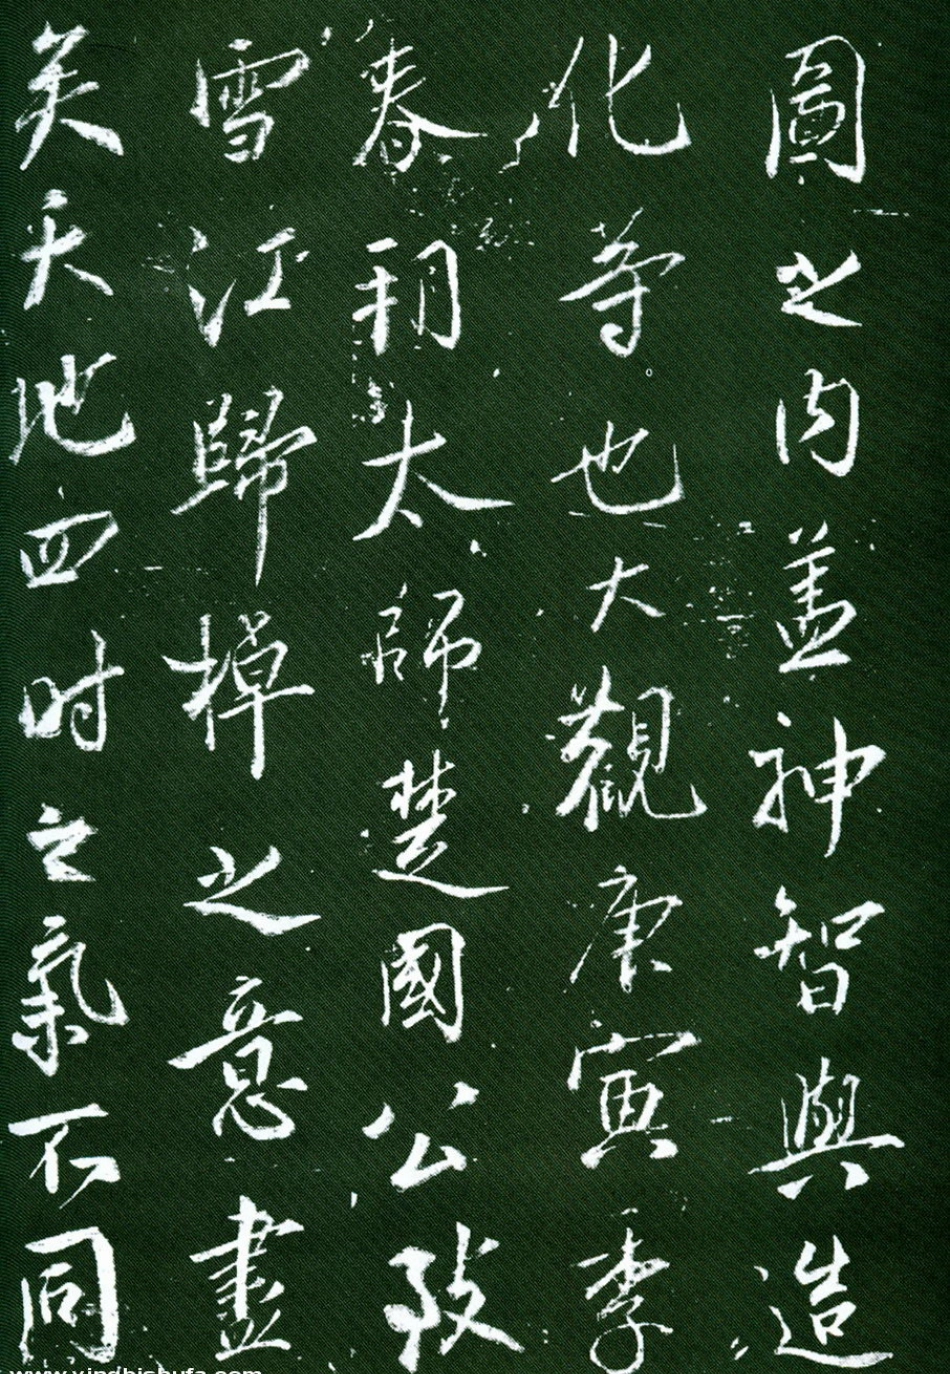 圖之内蓋神智與造
化等也大觀庚寅季
春朔太師楚國公致
雪江歸棹之意盡
矣天地四時之氣不同
www.yingbishufa.com